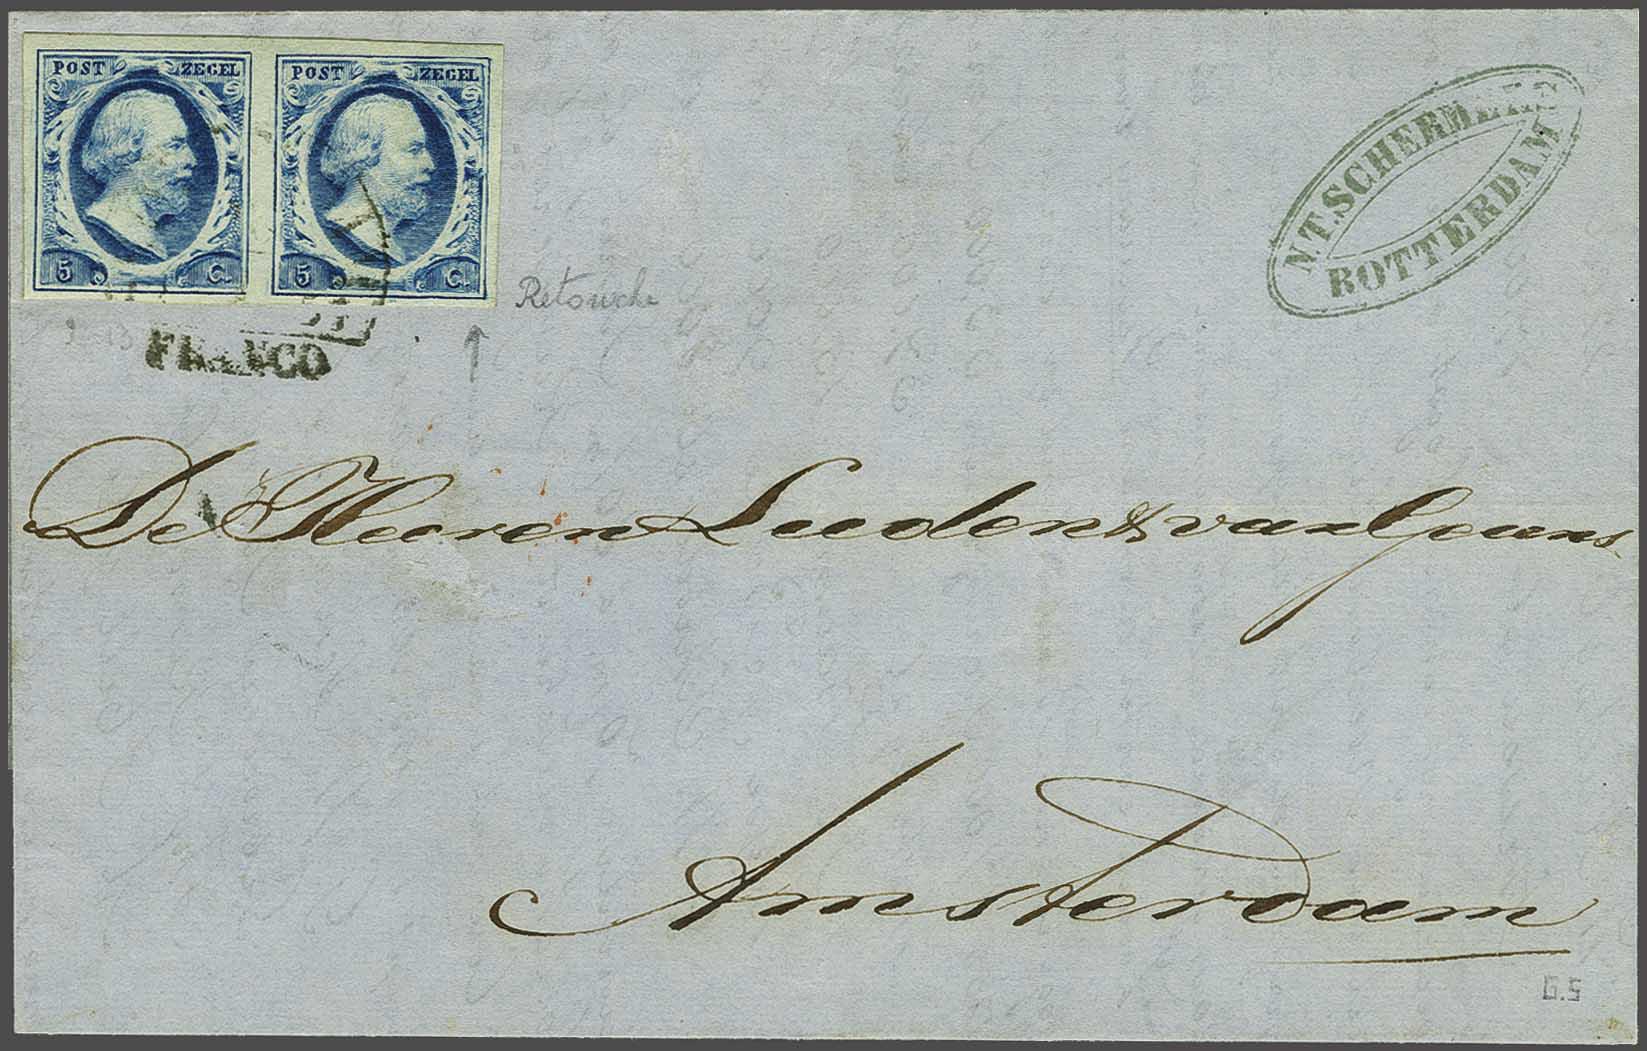 POST ZEGEL POST ZEGEL
5 C. 5 C.
FRANCO
Retouche
N.T. SCHERME
ROTTERDAM
De Heeren Luden & van Geuns
Amsterdam
G.S